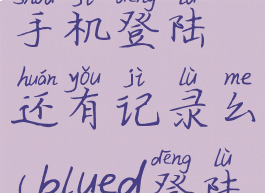 shǒu jī dēng lù
手机登陆
huán yǒu jì lù me
还有记录么
dēng lù
(blued登陆